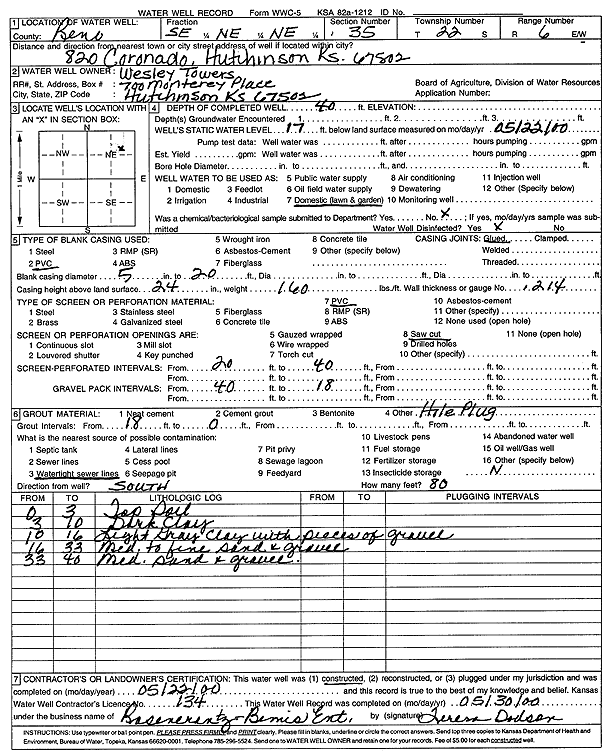 WATER WELL RECORD Form WWC-5 KSA 82a-1212 ID No.
1 LOCATION OF WATER WELL: Fraction Section Number Township Number Range Number
County: Reno SE ¼ NE ¼ NE ¼ 35 T 22 S R 6 E/W
Distance and direction from nearest town or city street address of well if located within city?
820 Coronado, Hutchinson Ks. 67502
2 WATER WELL OWNER: Wesley Towers
RR#, St. Address, Box # : 700 Monterey Place Board of Agriculture, Division of Water Resources
City, State, ZIP Code : Hutchinson Ks 67502 Application Number:
3 LOCATE WELL'S LOCATION WITH AN "X" IN SECTION BOX:
N
NW NE X
W E
SW SE
S
1 Mile
4 DEPTH OF COMPLETED WELL 40 ft. ELEVATION:
Depth(s) Groundwater Encountered 1. ft. 2. ft. 3. ft.
WELL'S STATIC WATER LEVEL 17 ft. below land surface measured on mo/day/yr 05/22/00
Pump test data: Well water was ft. after hours pumping gpm
Est. Yield gpm: Well water was ft. after hours pumping gpm
Bore Hole Diameter in. to ft., and in. to ft.
WELL WATER TO BE USED AS: 5 Public water supply 8 Air conditioning 11 Injection well
1 Domestic 3 Feedlot 6 Oil field water supply 9 Dewatering 12 Other (Specify below)
2 Irrigation 4 Industrial 7 Domestic (lawn & garden) 10 Monitoring well
Was a chemical/bacteriological sample submitted to Department? Yes No X ; If yes, mo/day/yrs sample was submitted
Water Well Disinfected? Yes X No
5 TYPE OF BLANK CASING USED: 5 Wrought iron 8 Concrete tile CASING JOINTS: Glued Clamped
1 Steel 3 RMP (SR) 6 Asbestos-Cement 9 Other (specify below) Welded
2 PVC 4 ABS 7 Fiberglass Threaded
Blank casing diameter 5 in. to 20 ft., Dia in. to ft., Dia in. to ft.
Casing height above land surface 24 in., weight 1.60 lbs./ft. Wall thickness or gauge No. .214
TYPE OF SCREEN OR PERFORATION MATERIAL: 7 PVC 10 Asbestos-cement
1 Steel 3 Stainless steel 5 Fiberglass 8 RMP (SR) 11 Other (specify)
2 Brass 4 Galvanized steel 6 Concrete tile 9 ABS 12 None used (open hole)
SCREEN OR PERFORATION OPENINGS ARE: 5 Gauzed wrapped 8 Saw cut 11 None (open hole)
1 Continuous slot 3 Mill slot 6 Wire wrapped 9 Drilled holes
2 Louvered shutter 4 Key punched 7 Torch cut 10 Other (specify) ft.
SCREEN-PERFORATED INTERVALS: From 20 ft. to 40 ft., From ft. to ft.
From ft. to ft., From ft. to ft.
GRAVEL PACK INTERVALS: From 40 ft. to 18 ft., From ft. to ft.
From ft. to ft., From ft. to ft.
6 GROUT MATERIAL: 1 Neat cement 2 Cement grout 3 Bentonite 4 Other Hole Plug
Grout Intervals: From 18 ft. to 0 ft., From ft. to ft., From ft. to ft.
What is the nearest source of possible contamination: 10 Livestock pens 14 Abandoned water well
1 Septic tank 4 Lateral lines 7 Pit privy 11 Fuel storage 15 Oil well/Gas well
2 Sewer lines 5 Cess pool 8 Sewage lagoon 12 Fertilizer storage 16 Other (specify below)
3 Watertight sewer lines 6 Seepage pit 9 Feedyard 13 Insecticide storage N
Direction from well? South How many feet? 80
FROM TO LITHOLOGIC LOG FROM TO PLUGGING INTERVALS
0 3 Top Soil
3 10 Dark Clay
10 16 Light Gray Clay with pieces of gravel
16 33 Med. to fine Sand & gravel
33 40 Med. Sand & gravel.
7 CONTRACTOR'S OR LANDOWNER'S CERTIFICATION: This water well was (1) constructed, (2) reconstructed, or (3) plugged under my jurisdiction and was
completed on (mo/day/year) 05/22/00 and this record is true to the best of my knowledge and belief. Kansas
Water Well Contractor's Licence No. 134 This Water Well Record was completed on (mo/day/yr) 05/30/00
under the business name of Rosencrantz-Bemis Ent. by (signature) Teresa Dodson
INSTRUCTIONS: Use typewriter or ball point pen. PLEASE PRESS FIRMLY and PRINT clearly. Please fill in blanks, underline or circle the correct answers. Send top three copies to Kansas Department of Health and
Environment, Bureau of Water, Topeka, Kansas 66620-0001. Telephone 785-296-5524. Send one to WATER WELL OWNER and retain one for your records. Fee of $5.00 for each constructed well.